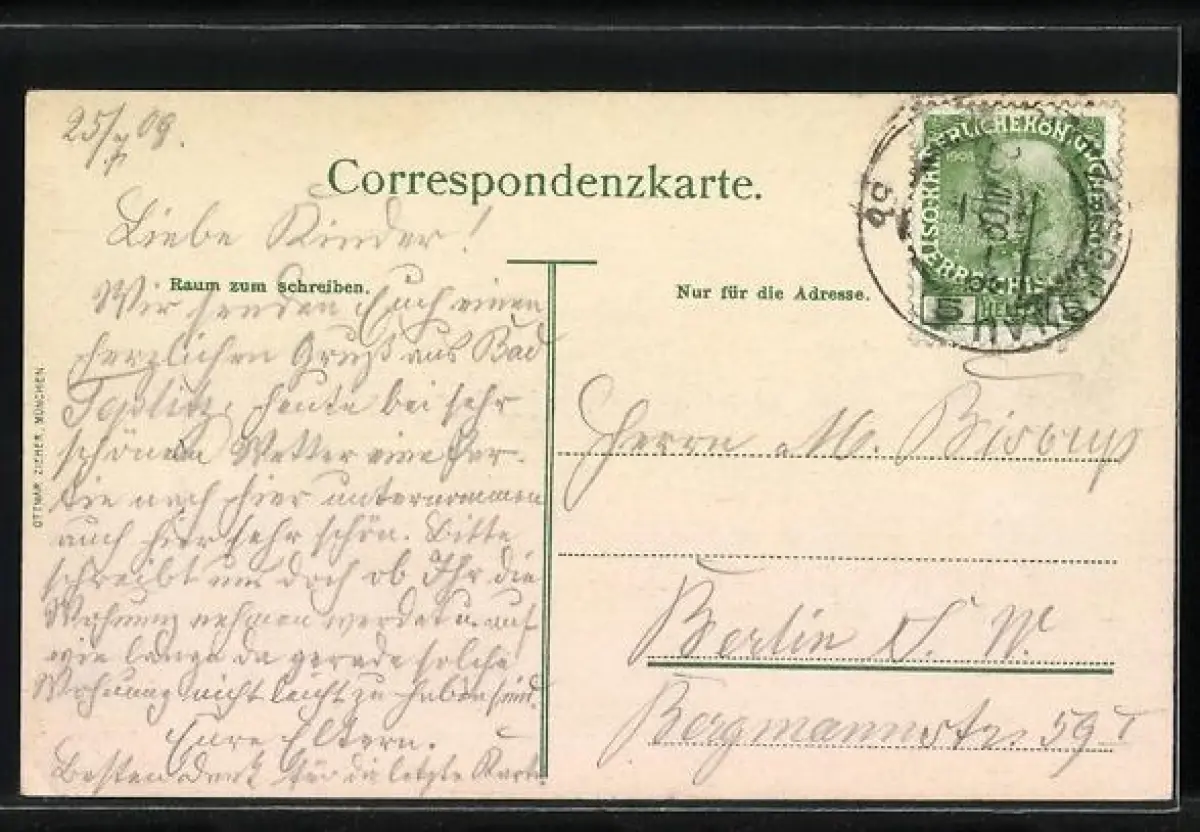 25/7 09.
Correspondenzkarte.
Liebe Kinder!
Raum zum Schreiben.
Nur für die Adresse.
Wir senden Euch einen
herzlichen Gruß aus Bad
Töplitz, heute bei sehr
schönem Wetter eine Par-
tie nach hier unternommen
auch hier sehr schön. Bitte
schreibt uns doch ob Ihr die
Wohnung nehmen werdet u. auf
wie lange da gerade solche
Wohnung nicht leicht zu haben sind.
Eure Eltern.
Besten Dank für die letzte Karte
OTTMAR ZIEHER, MÜNCHEN.
Herrn M.
Berlin S. W.
Bergmannstr. 59 I
1908
5 5